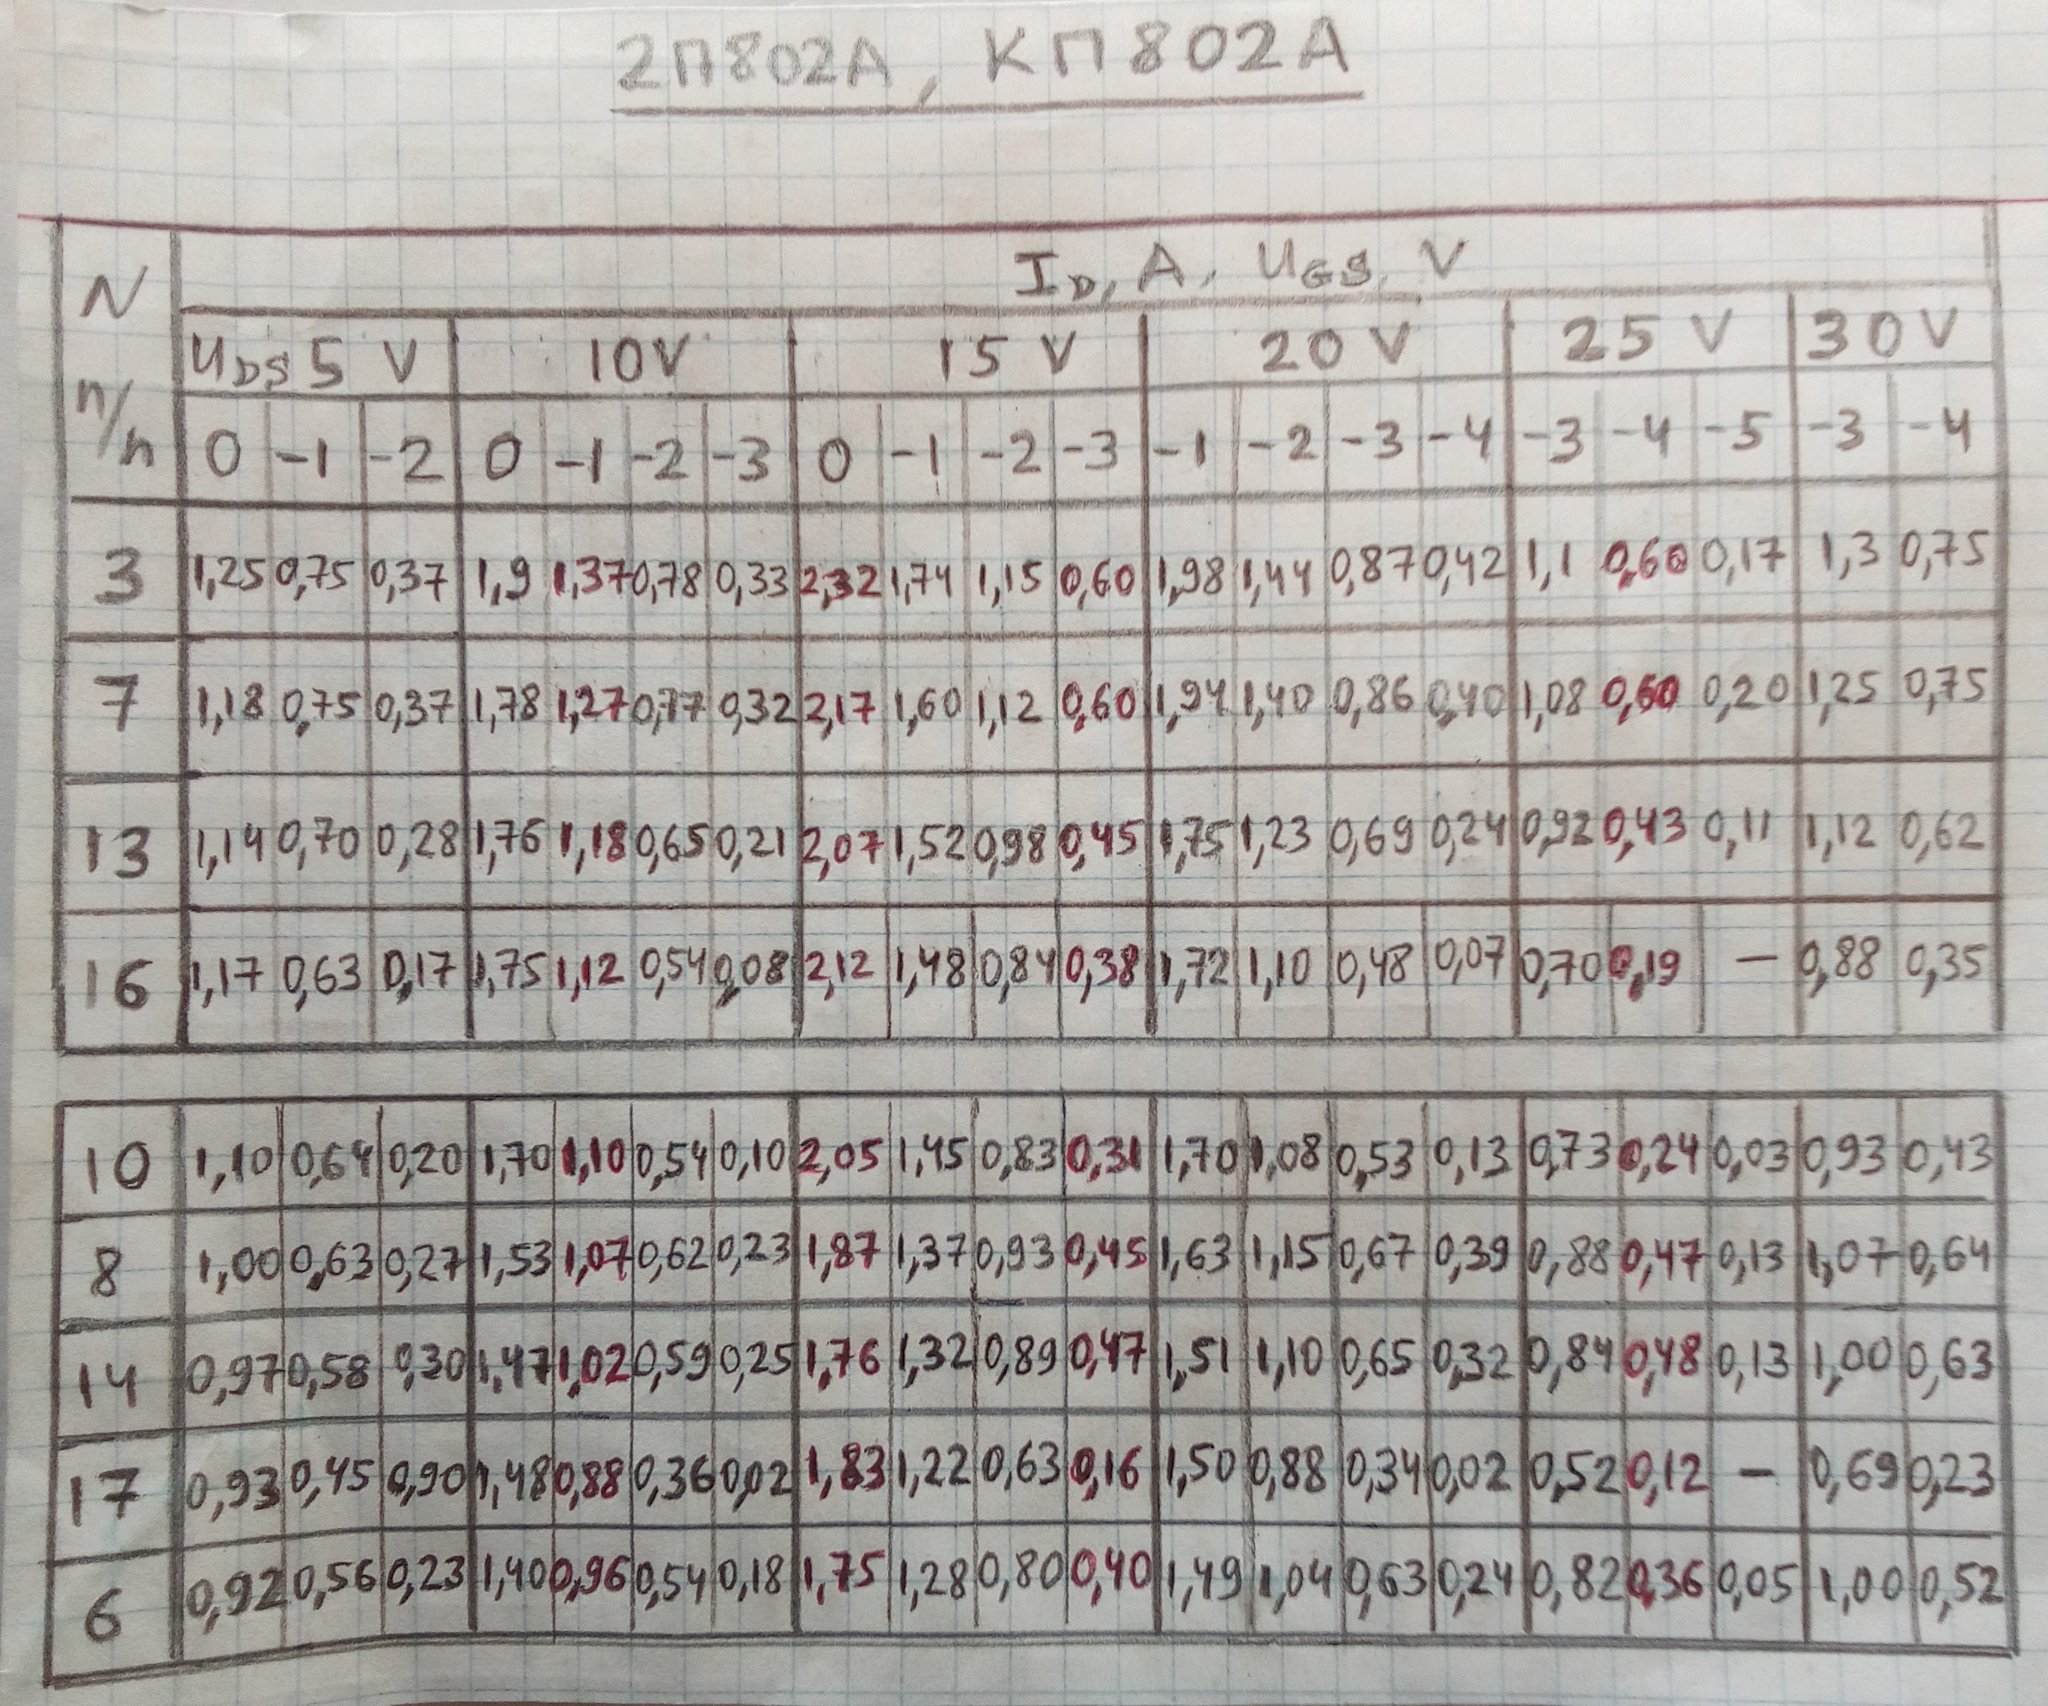 2П802А, КП802А
N n/n
I_D, A, U_GS, V
U_DS 5 V 10V 15 V 20 V 25 V 30V
0 -1 -2 0 -1 -2 -3 0 -1 -2 -3 -1 -2 -3 -4 -3 -4 -5 -3 -4
3 1,25 0,75 0,37 1,9 1,37 0,78 0,33 2,32 1,74 1,15 0,60 1,98 1,44 0,87 0,42 1,1 0,60 0,17 1,3 0,75
7 1,18 0,75 0,37 1,78 1,27 0,77 0,32 2,17 1,60 1,12 0,60 1,94 1,40 0,86 0,40 1,08 0,60 0,20 1,25 0,75
13 1,14 0,70 0,28 1,76 1,18 0,65 0,21 2,07 1,52 0,98 0,45 1,75 1,23 0,69 0,24 0,92 0,43 0,11 1,12 0,62
16 1,17 0,63 0,17 1,75 1,12 0,54 0,08 2,12 1,48 0,84 0,38 1,72 1,10 0,48 0,07 0,70 0,19 — 0,88 0,35
10 1,10 0,64 0,20 1,70 1,10 0,54 0,10 2,05 1,45 0,83 0,31 1,70 1,08 0,53 0,13 0,73 0,24 0,03 0,93 0,43
8 1,00 0,63 0,27 1,53 1,07 0,62 0,23 1,87 1,37 0,93 0,45 1,63 1,15 0,67 0,39 0,88 0,47 0,13 1,07 0,64
14 0,97 0,58 0,30 1,47 1,02 0,59 0,25 1,76 1,32 0,89 0,47 1,51 1,10 0,65 0,32 0,84 0,48 0,13 1,00 0,63
17 0,93 0,45 0,90 1,48 0,88 0,36 0,02 1,83 1,22 0,63 0,16 1,50 0,88 0,34 0,02 0,52 0,12 — 0,69 0,23
6 0,92 0,56 0,23 1,40 0,96 0,54 0,18 1,75 1,28 0,80 0,40 1,49 1,04 0,63 0,24 0,82 0,36 0,05 1,00 0,52